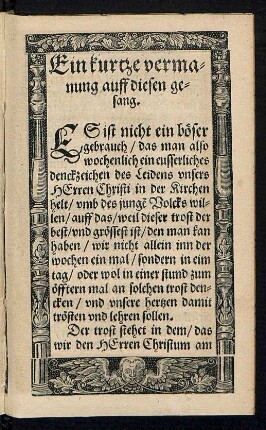 Ein kurtze verma-
nung auff diesen ge-
sang.
ES ist nicht ein böser
gebrauch / das man also
wochenlich ein eusserliches
denckzeichen des Leidens vnsers
HErren Christi in der Kirchen
helt / vmb des jungẽ Volcks wil-
len / auff das / weil dieser trost der
best / vnd grössest ist / den man kan
haben / wir nicht allein inn der
wochen ein mal / sondern in eim
tag / oder wol in einer stund zum
öfftern mal an solchen trost den-
cken / vnd vnsere hertzen damit
trösten vnd lehren sollen.
Der trost stehet in dem / das
wir den HErren Christum am